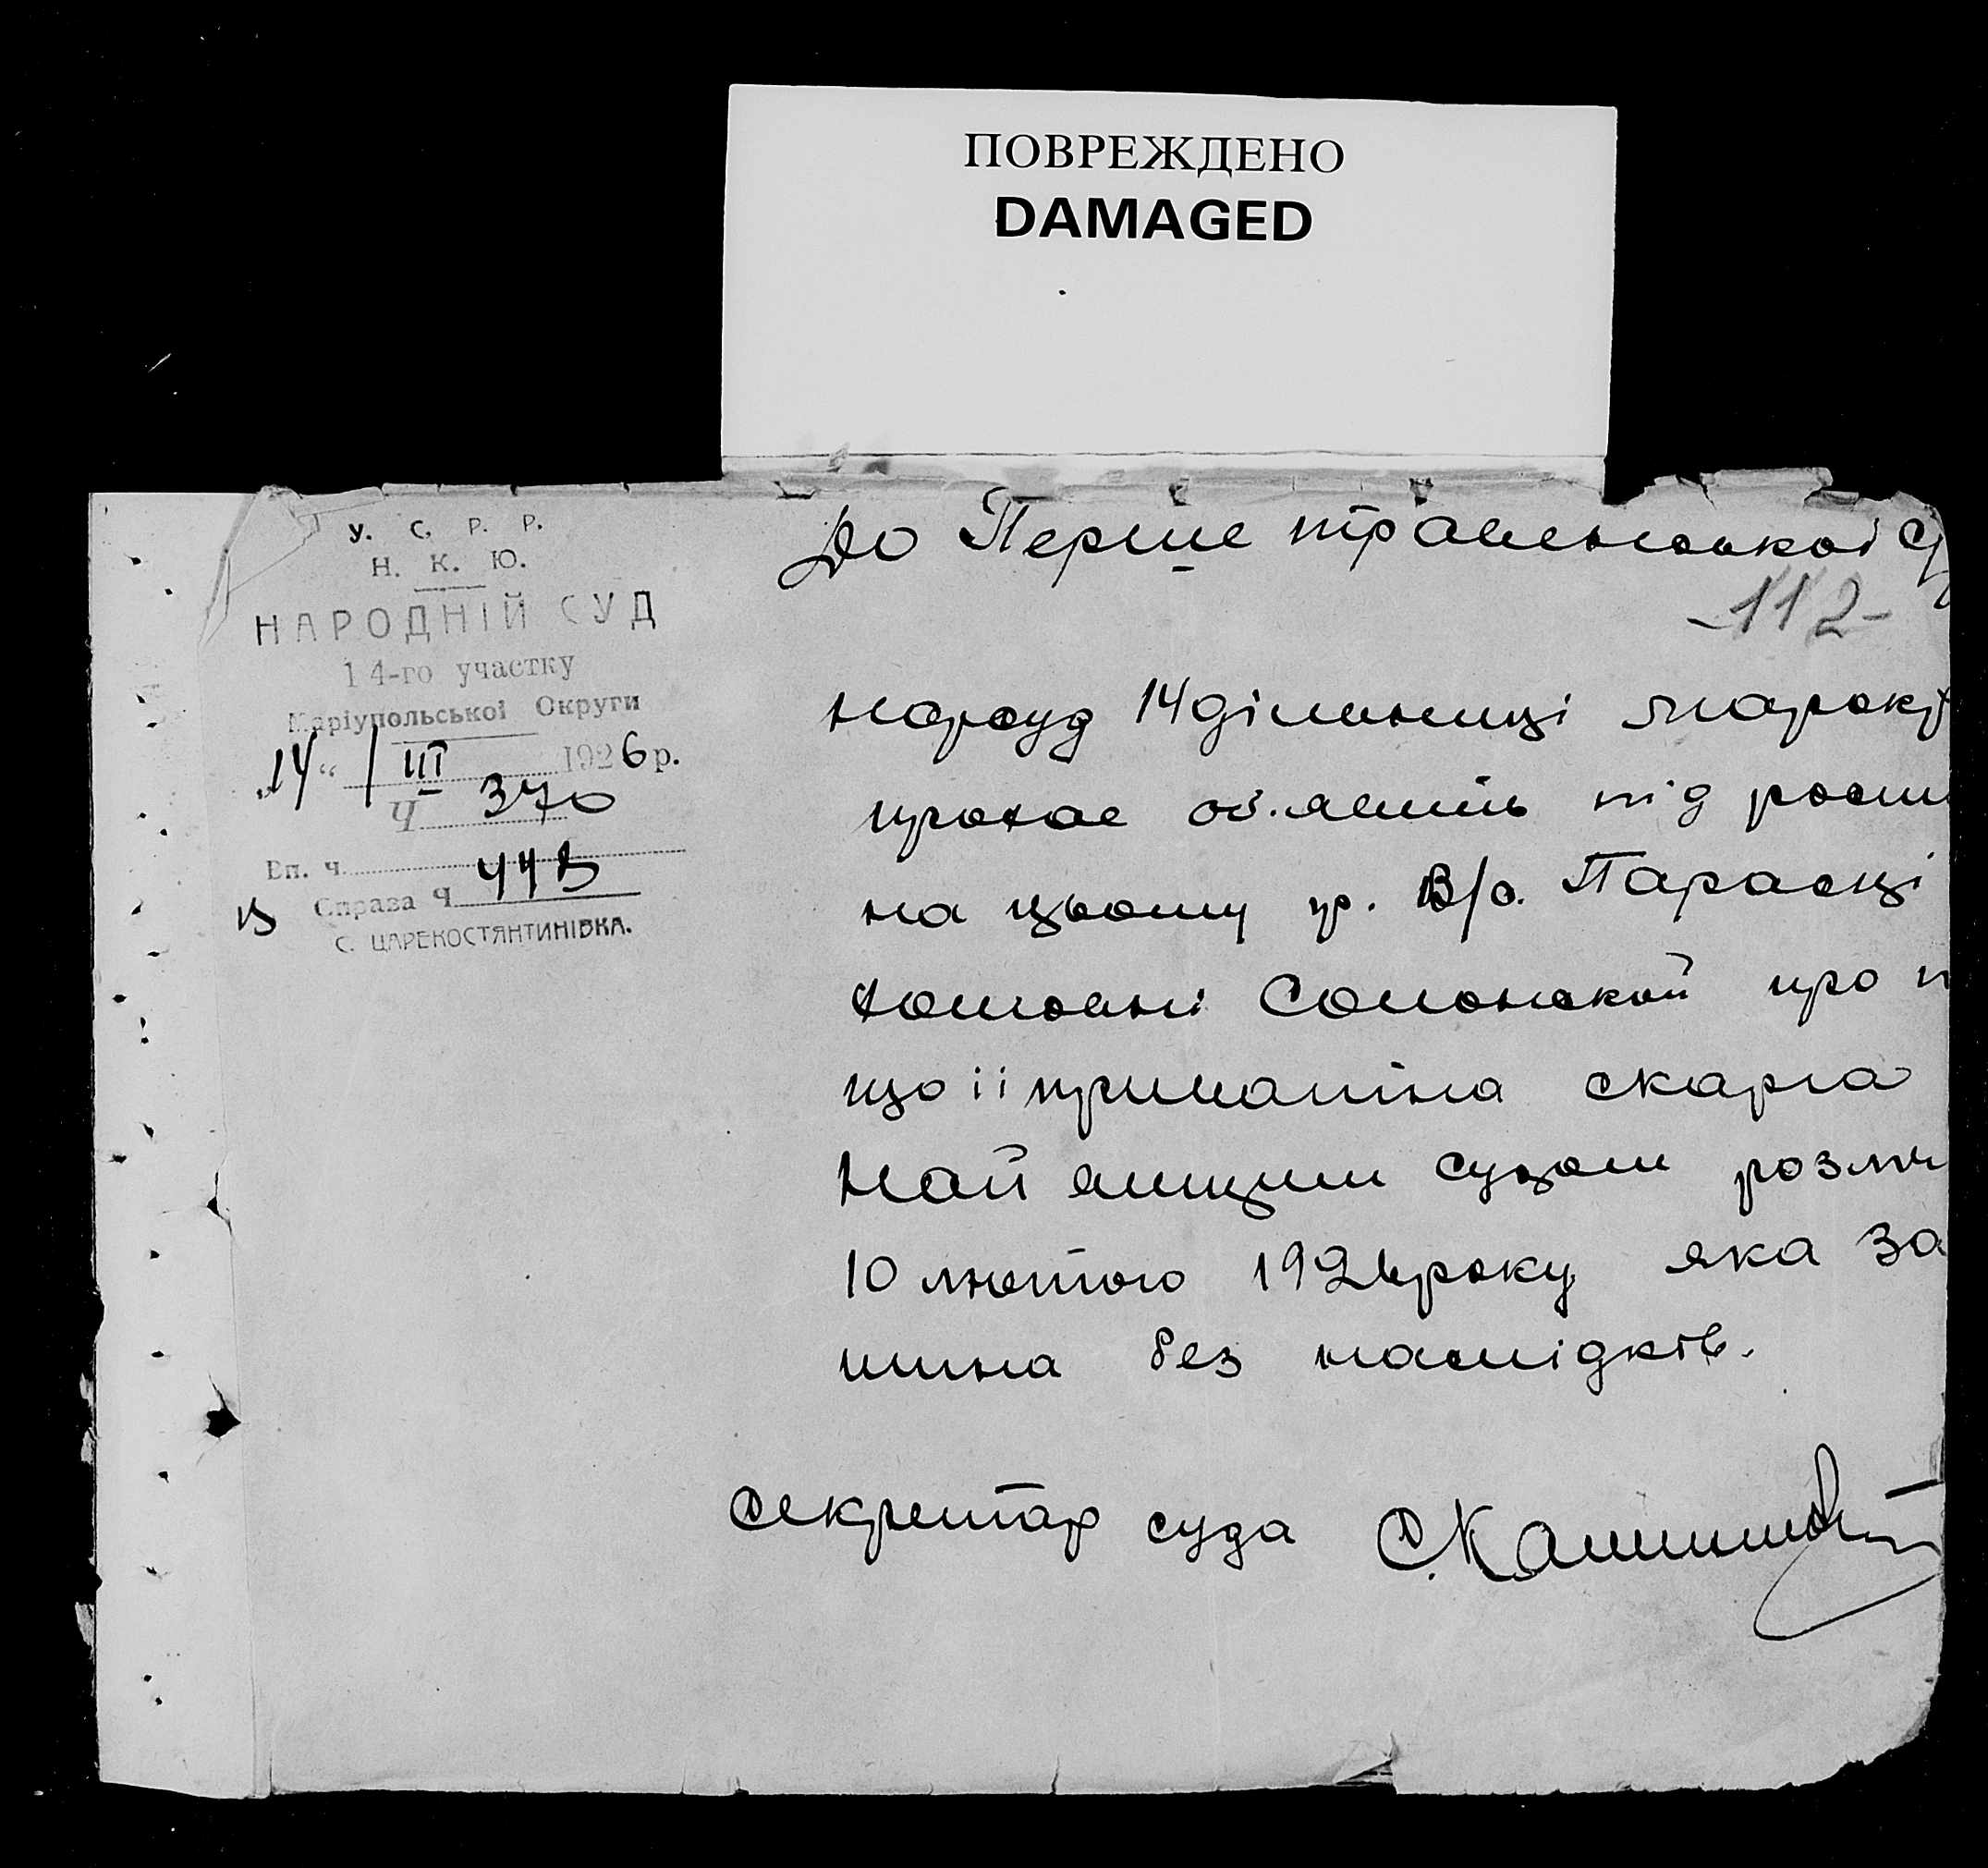 ПОВРЕЖДЕНО
DAMAGED
У. С. Р. Р.
Н. К. Ю.
НАРОДНІЙ СУД
14-го участку
Маріупольської Округи
„14“ III 1926 р.
Ч 370
Вп. ч.
Справа Ч 44В
С. ЦАРЕКОСТЯНТИНІВКА.
До Перше травенської С
-112-
Нарсуд 14 дільниці
прохае об.явить під роспи
на цьому гр. В/о. Парасці
про
що її скарга
Най вищим судом розгля
10 лютого 1926 року яка за
шина без наслідків.
Секретар суда